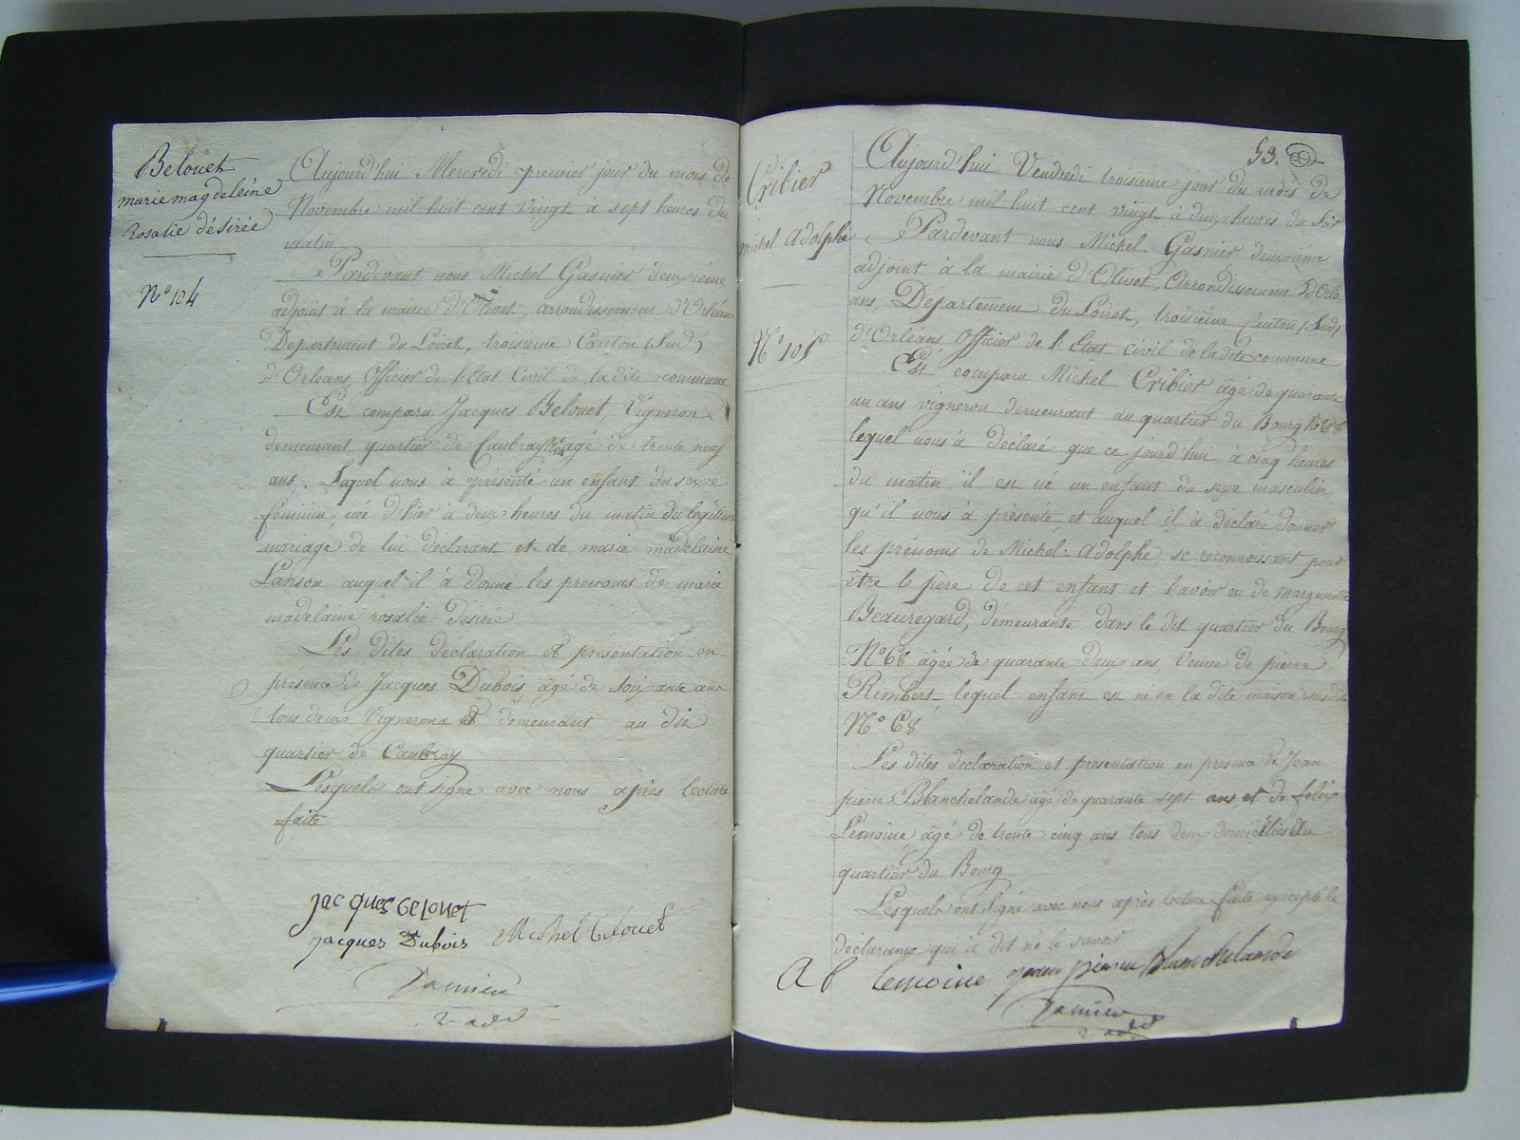 Belouet
marie magdeleine
Rosalie désirée
N° 104
Aujourd'hui Mercredi premier jour du mois de
Novembre mil huit cent vingt à sept heures du
matin
Pardevant nous Michel Gasnier deuxième
adjoint à la mairie d'Olivet, arrondissement d'Orléans
Département du Loiret, troisieme Canton (Sud)
d'Orléans, Officier de l'Etat Civil de la dite commune
Est comparu Jacques Belouet, Vigneron
demeurant quartier de Caubray agé de trente neuf
ans. Lequel nous à présenté un enfant du sexe
féminin, né d'hier à deux heures du matin du légitime
mariage de lui déclarant et de marie madelaine
Lanson auquel il à donné les prenoms de marie
madelaine rosalie desirée
Les dites déclaration et presentation en
presence de Jacques Dubois âgé de soixante ans
tous deux Vignerons et demeurant au dit
quartier de Caubray
Lesquels ont signé avec nous après lecture
faite
jacques belouet
jacques Dubois Michel belouet
Gasnier
2e adjt
53.
Cribier
michel Adolphe
N° 105
Aujourd'hui Vendredi troisieme jour du mois de
Novembre mil huit cent vingt à deux heures du soir
Pardevant nous Michel Gasnier deuxieme
adjoint à la mairie d'Olivet, Arrondissement d'Orlé
ans, Département du Loiret, troisième Canton (Sud)
d'Orléans Officier de l'Etat civil de la dite commune
Est comparu Michel Cribier âgé de quarante
un ans vigneron demeurant au quartier du Bourg N° 68
lequel nous à déclaré que ce jourd'hui à cinq heures
du matin il est né un enfant du sexe masculin
qu'il nous à présenté et auquel il à déclaré donner
les prénoms de Michel Adolphe se reconnoissant pour
être le père de cet enfant et l'avoir eu de marguerite
Beauregard, demeurante dans le dit quartier du Bourg
N° 68 âgée de quarante deux ans Veuve de pierre
Rimbert lequel enfant est né en la dite maison
N° 68
Les dites declaration et presentation en presence de Jean
pierre Blanchelande âgé de quarante sept ans et de felix
Lemoine âgé de trente cinq ans tous deux domiciliés au
quartier du Bourg
Lesquels ont signé avec nous après lecture faite excepté le
déclarant qui à dit ne le savoir
lemoine jean pierre Blanchelande
Gasnier
2 adjt